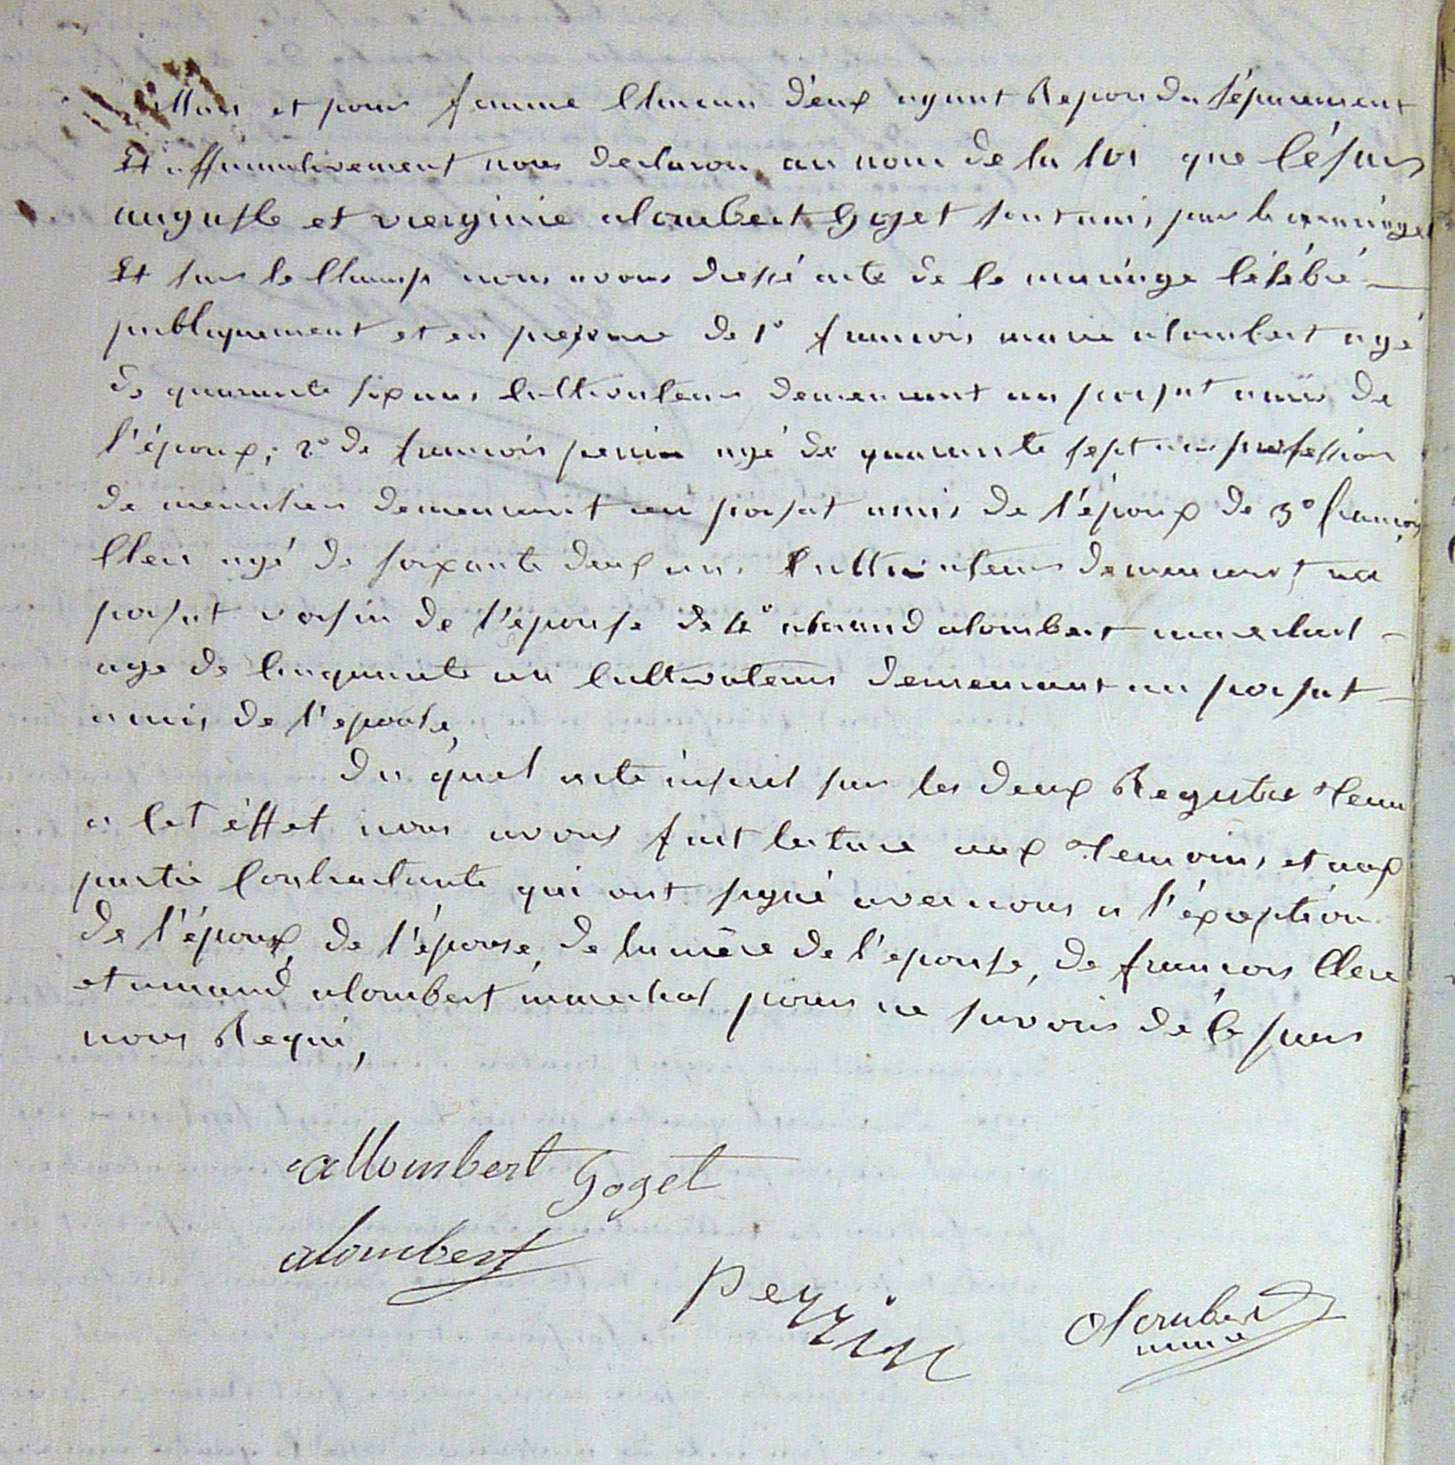 Mari et pour femme Chacun d'eux ayant Repondu séparement
Et affirmativement nous declaron au nom de la loi que Césars
auguste et vierginie alombert Goget sont unis par le mariage
Et sur le Champ nous avons dressé acte de ce mariage Célébré
publiquement et en presence de 1° francois marie alombert agé
de quarante six ans Cultivateur demeurant au poisat amis de
l'époux; 2° de francois perrin agé de quarante sept ans profession
de menusier demeurant au poisat amis de l'époux de 3° francois
Clerc agé de soixante deux ans Cultivateur demeurant au
poisat voisin de l'épouse de 4° amand alombert marechal
age de Cinquante un Cultivateur demeurant au poisat
amis de l'epouse,
Du quel acte inseret sur les deux Registre tenu
a Cet éffet nous avons fait lecture aux temoins et aux
partie Contractante qui ont signé avec nous a l'éxeption
de l'époux, de l'épouse, de la mêre de l'epouse, de francois Clerc
et amand alombert marechal pour ne savoir de Ce faire
nous Requi,
allombert Goget
alombert
perrin
Alombert
maire